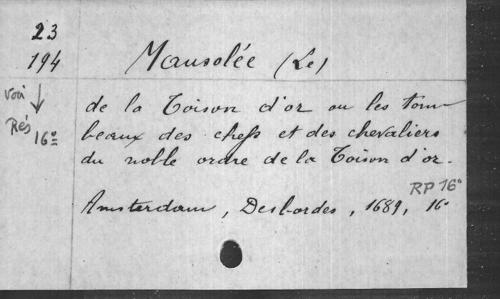 23
194
Mausolée (Le)
voir
↓
Rés
16°
de la Toison d'or ou les tom-
beaux des chefs et des chevaliers
du noble ordre de la Toison d'or.
RP 16°
Amsterdam, Desbordes, 1689, 16°